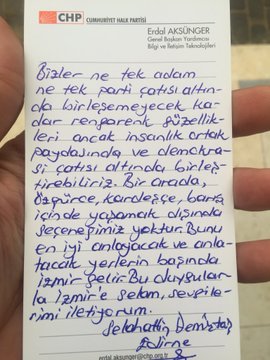 CHP CUMHURİYET HALK PARTİSİ
Erdal AKSÜNGER
Genel Başkan Yardımcısı
Bilgi ve İletişim Teknolojileri
Bizler ne tek adam
ne tek parti çatısı altın-
da birleşemeyecek ka-
dar rengarenk güzellik-
leri ancak insanlık ortak
paydasında ve demokra-
si çatısı altında birleş-
tirebiliriz. Bir arada,
özgürce, kardeşçe, barış
içinde yaşamak dışında
seçeneğimiz yoktur. Bunu
en iyi anlayacak ve anla-
tacak yerlerin başında
İzmir gelir. Bu duygular-
la İzmir'e selam, sevgile-
rimi iletiyorum.
Selahattin Demirtaş
Edirne
erdal.aksunger@chp.org.tr